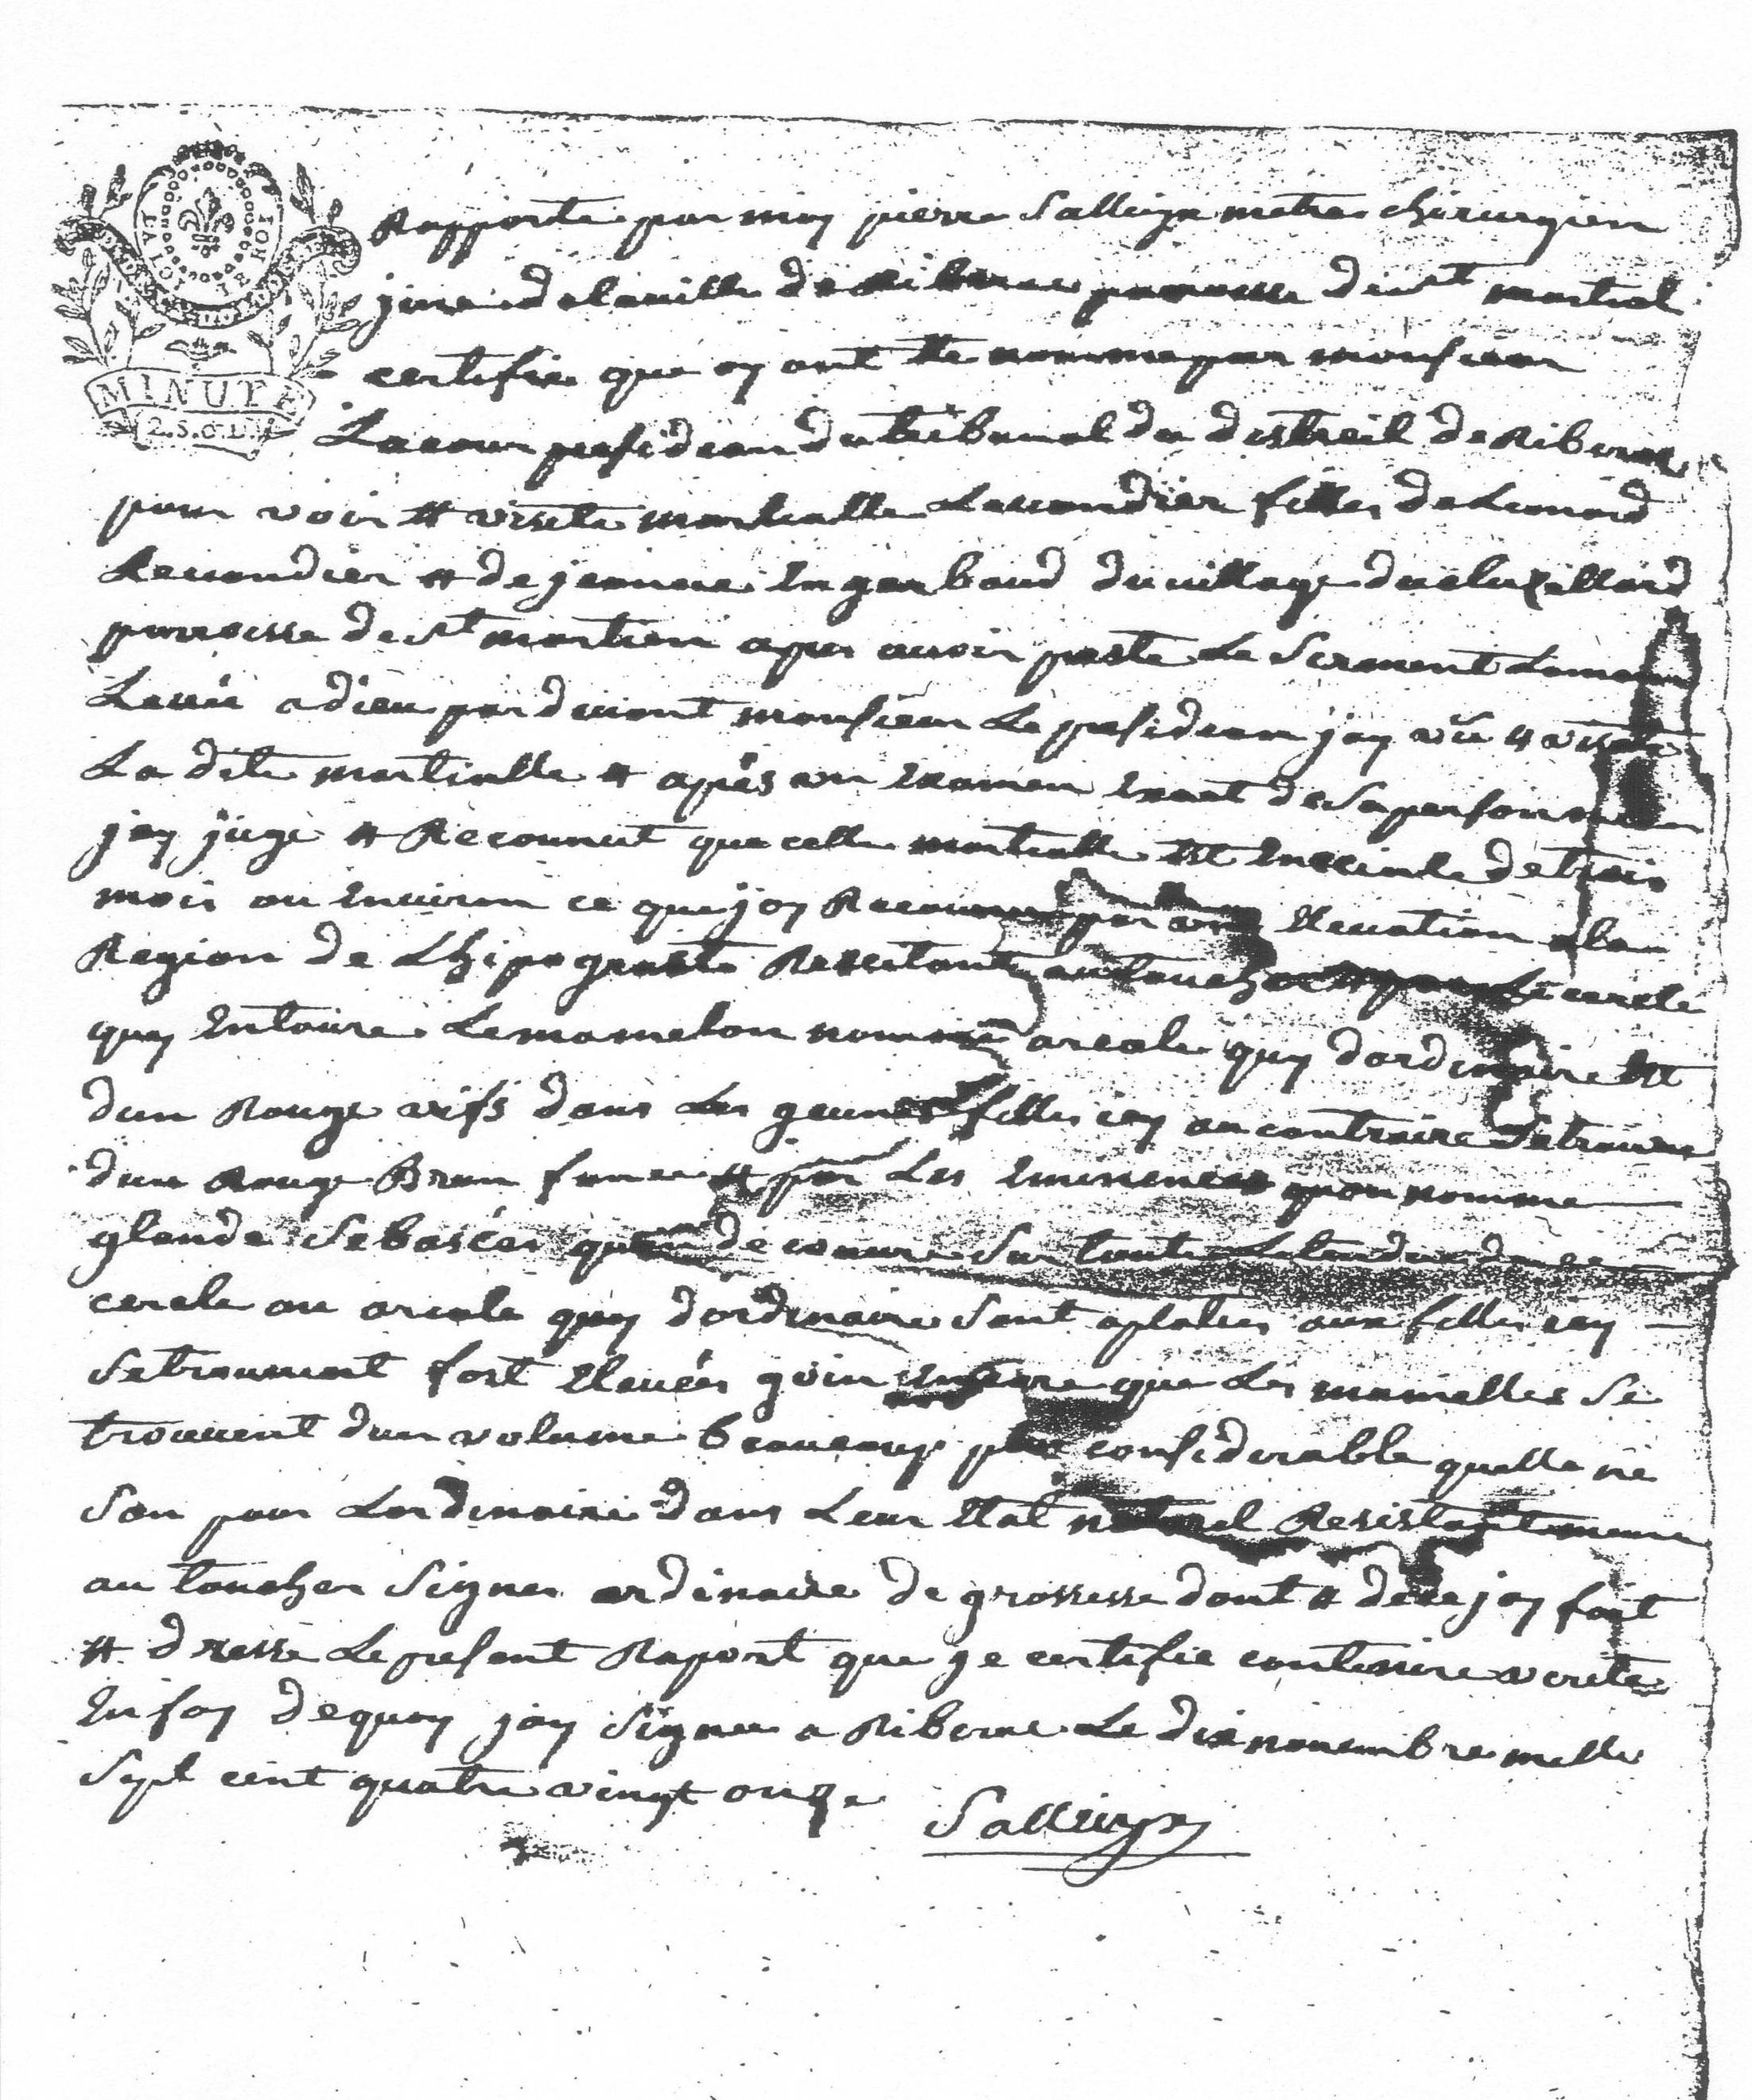 LA LOI
LE ROI
MINUTE
2. S. 6 D.
Rapporte par moy pierre Salleyx metre chirurgien
jure de la ville de Riberac paroisse de st martial
certifie que ey ant ete nomme par monsieur
Lacour presidean du tribunal du distreil de Riberac
pour voir et visite martialle Lecondier filles de Leonard
Lecondier et de jeanne Engenbaud du village du
parroisse de st martien apres avoir preste le Serment Lamain
Levée a dieu par devant monsieur Le presidean jay vüe et visite
La dite martialle et aprés un Examen Exact de Sa personne
jay jugé et Reconnut que celle martialle est Enceinte de trois
mois ou Environ ce que jay Reconnu par une Elevation a la
Region de Lhipograste Resistante au toucher et par Le cercle
quy Entoure Le mamelon nommé areole quy dordinaire est
dun Rouge vifs dans Les geunes filles icy au contraire Se trouve
dun Rouge Brun foncée et par Les Eminences quon nomme
glande Sebasées quon de couvre Sur toute Letendue de ce
cercle ou areole quy dordinaire Sont aplaties aux filles icy
Se trouvent fort Elevées join Encore que Les mamelles Se
trouvent dun volume beaucoup plus considerable quelle ne
Son pour Lordinaire dans Leur Etat naturel Resistant meme
au toucher Signes ordinaire de grossesse dont et de ce jay fait
et dresse Le present Raport que je certifie contenire verite
En foy de quoy jay Signee a Riberac Le dix novembre mille
Sept cent quatre vingt onze
Salleyx